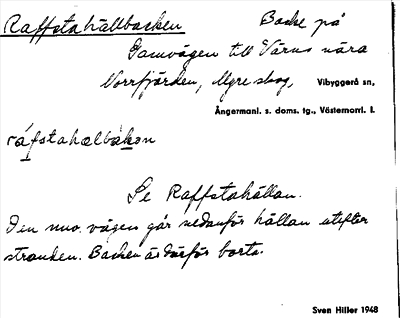 Raffstahällbacken Backe på
Gamvägen till Värns nära
Norrfjärden, Myre skog, Vibyggerå sn,
Ångermanl. s. doms. tg., Västernorrl. l.
ráfstahælbákən
Se Raffstahällan.
Den nuv. vägen går nedanför hällan utefter
stranden. Backen är därför borta.
Sven Hiller 1948